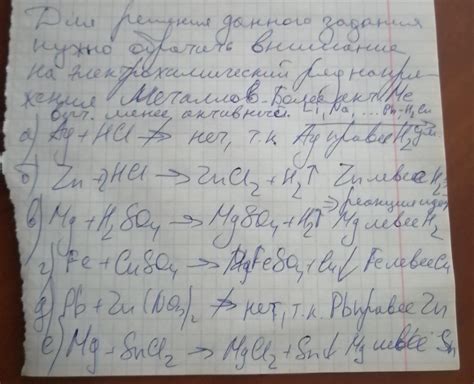 Для решения данного задания
нужно обратить внимание
на электрохимический ряд напря-
жения металлов. Более акт Me
выт. менее активные. Li, Na, ... Pb-H2Cu
а) Ag + HCl ≠> нет, т.к Ag правее H2
б) Zn + 2HCl → ZnCl2 + H2↑ Zn левее H2
⇒ реакция идёт
в) Mg + H2SO4 → MgSO4 + H2↑ Mg левее H2
г) Fe + CuSO4 → FeSO4 + Cu↓ Fe левее Cu
д) Pb + Zn(NO3)2 ≠> нет, т.к. Pb правее Zn
е) Mg + SnCl2 → MgCl2 + Sn↓ Mg левее Sn